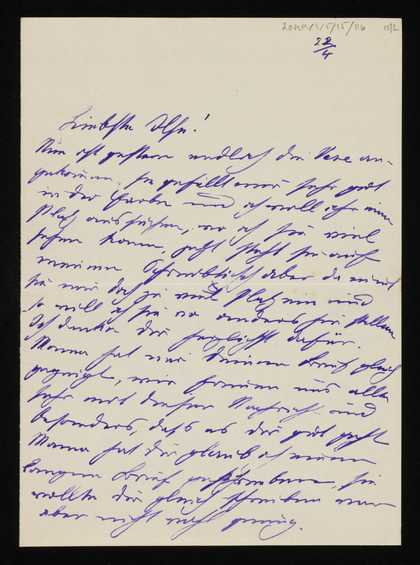 22/4
Liebste Ilse!
Nun ist gestern endlich die Vase an-
gekommen, sie gefällt mir sehr gut
in der Farbe und ich will ihr einen
Platz aussuchen, wo ich sie viel
sehen kann, jetzt steht sie auf
meinem Schreibtisch aber da nimmt
sie mir doch zu viel Platz um und
so will ich sie wo anders hin stellen.
Ich danke dir herzlichst dafür.
Mama hat mir deinen Brief gleich
gezeigt, wir freuen uns alle
sehr mit dieser Nachricht und
besonders, daß es dir gut geht
Mama hat dir glaub ich einen
langen Brief geschrieben, sie
wollte dir gleich schreiben war
aber nicht wohl genug.